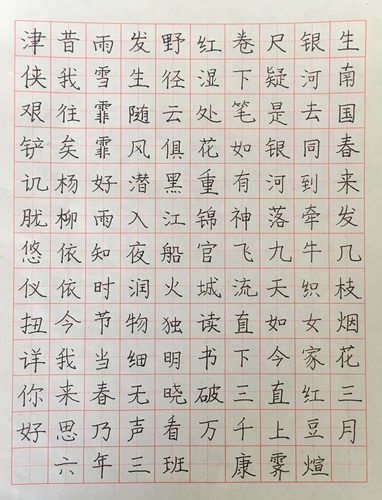 津侠艰铲讥胧悠仪扭详你好
昔我往矣杨柳依依今我来思
雨雪霏霏好雨知时节当春乃
发生随风潜入夜润物细无声
野径云俱黑江船火独明晓看
红湿处花重锦官城读书破万
卷下笔如有神飞流直下三千
尺疑是银河落九天如今直上
银河去同到牵牛织女家红豆
生南国春来发几枝烟花三月
六年三班 康霁煊